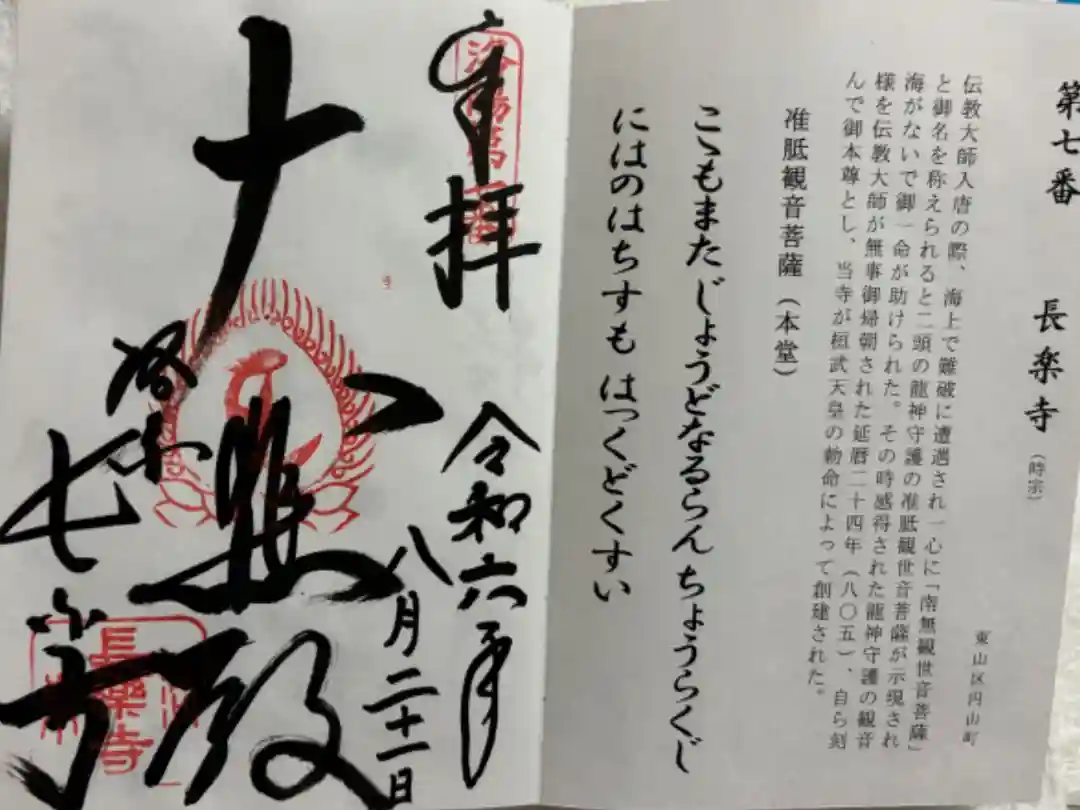 第七番 長楽寺 (時宗)
東山区円山町
伝教大師入唐の際、海上で難破に遭遇され一心に「南無観世音菩薩」
と御名を称えられると二頭の龍神守護の准胝観世音菩薩が示現され
海がないで御一命が助けられた。その時感得された龍神守護の観音
様を伝教大師が無事御帰朝された延暦二十四年(八〇五)、自ら刻
んで御本尊とし、当寺が桓武天皇の勅命によって創建された。
准胝観音菩薩(本堂)
こゝもまた じょうどなるらん ちょうらくじ
にはのはちすも はっくどくすい
奉拝
令和六年
八月二十一日
大悲殿
長樂寺